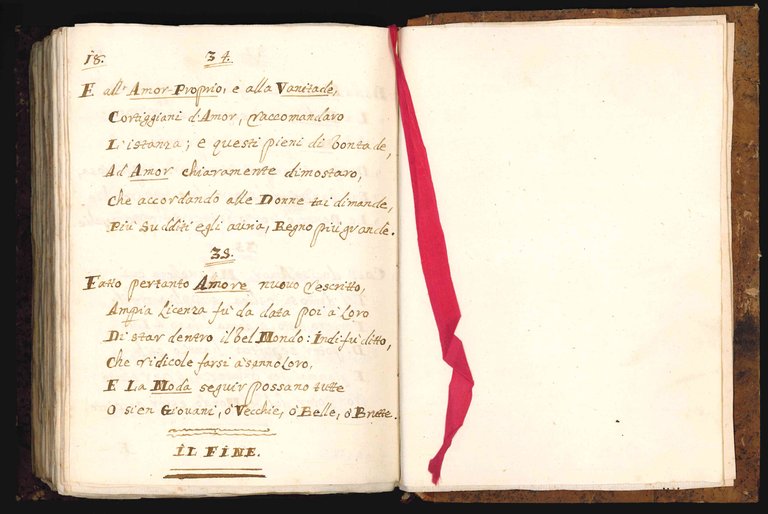 18. 34.
E all' Amor-Proprio, e alla Vanitade,
Cortiggiani d'Amor, raccomandaro
L'istanza; e questi pieni di bontade,
Ad Amor chiaramente dimostaro,
Che accordando alle Donne tai dimande,
Più Sudditi egli avria, Regno più grande.
35.
Fatto pertanto Amore nuovo rescritto,
Ampia Licenza fù da data poi à Loro
Di star dentro il bel Mondo: indi fu ditto,
Che ridicole farsi à sanno Loro,
E La Moda seguir possano tutte
O sien Giovani, ò Vecchie, ò Belle, ò Brutte.
IL FINE.